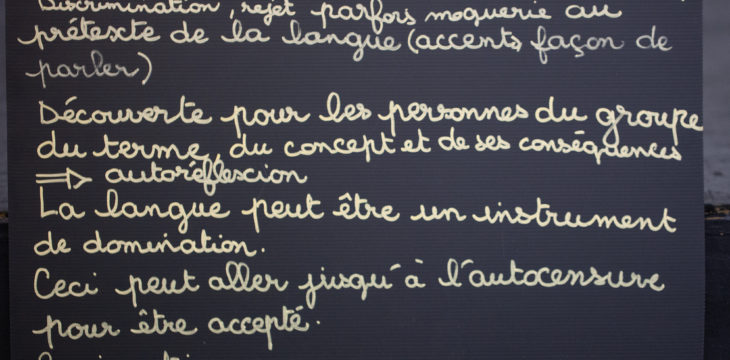 Discrimination, rejet parfois moquerie au
prétexte de la langue (accents, façon de
parler)
Découverte pour les personnes du groupe
du terme, du concept et de ses conséquences
⇒ autoréflexion
La langue peut être un instrument
de domination.
Ceci peut aller jusqu'à l'autocensure
pour être accepté.